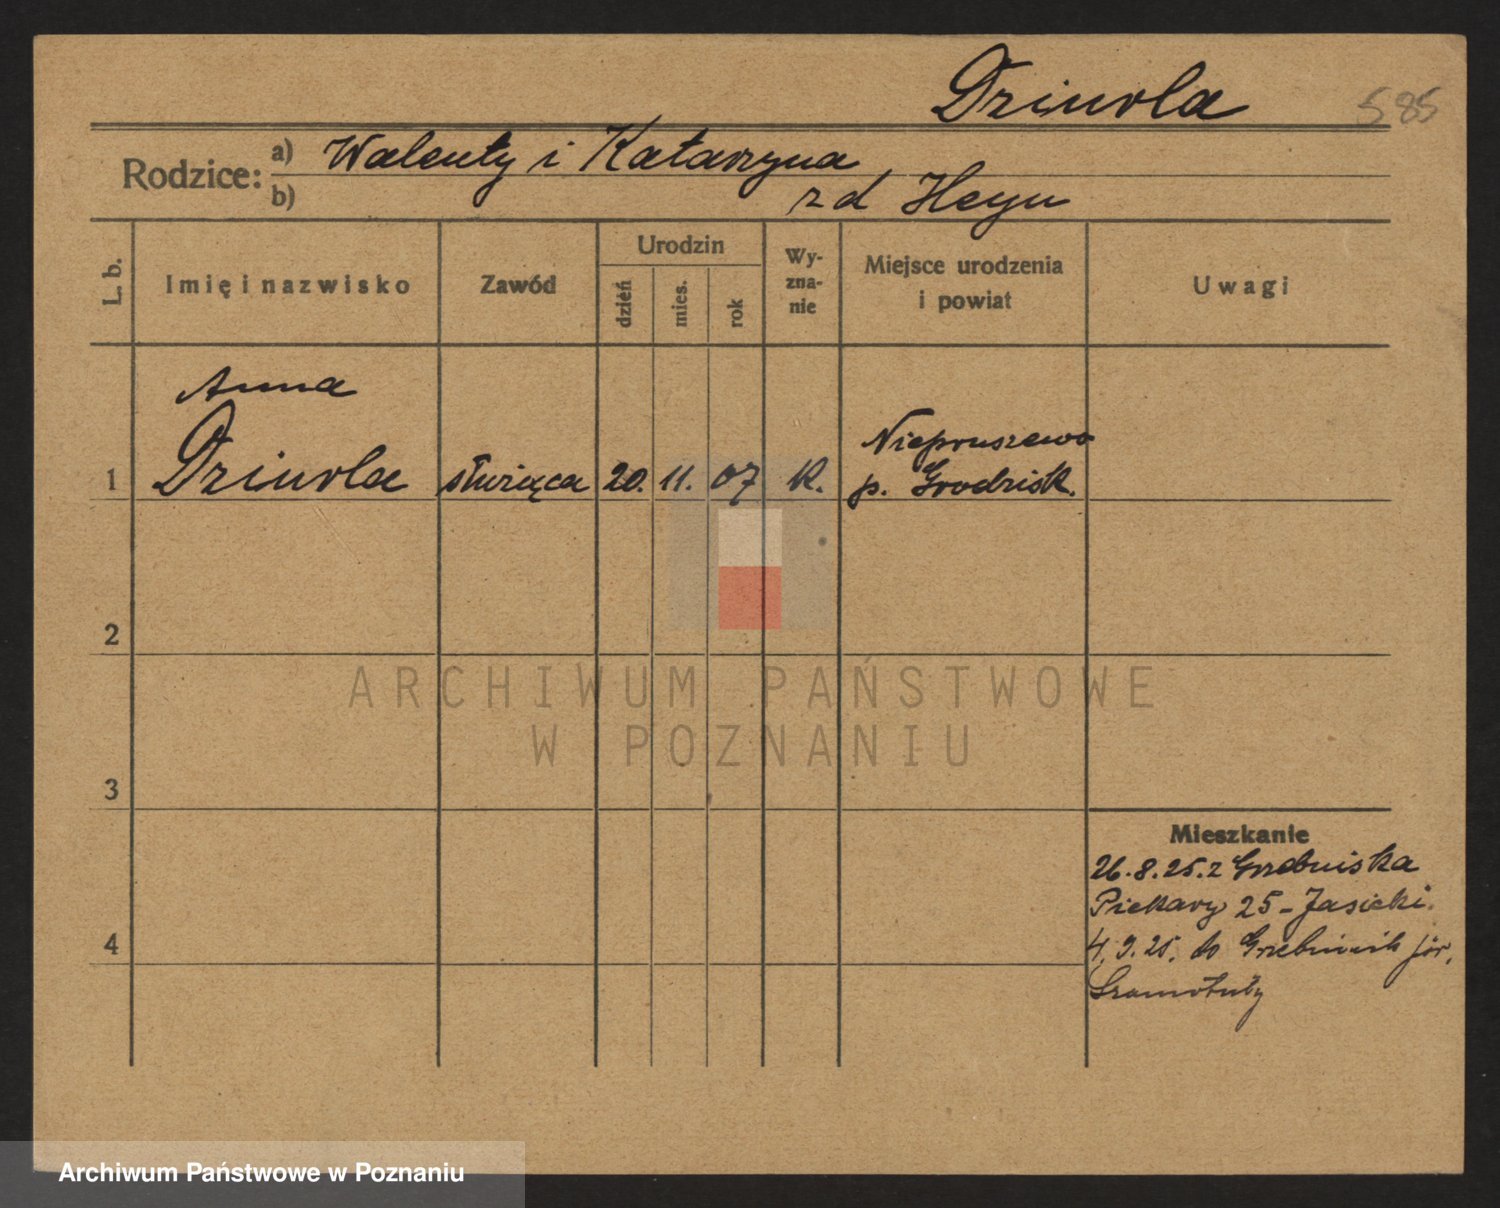 Dziurla 585
Rodzice: a) Walenty i Katarzyna
b) zd Heyn
L. b. Imię i nazwisko Zawód Urodzin dzień mies. rok Wyznanie Miejsce urodzenia i powiat Uwagi
Anna
Niepruszewo
1 Dziurla służąca 20. 11. 07 K. p. Grodzisk.
2
ARCHIWUM PAŃSTWOWE
W POZNANIU
3
Mieszkanie
26.8.25. z Grzebniska
Piekary 25 - Jasicki.
4
4.9.25. do Grzebienisk
Szamotuły
Archiwum Państwowe w Poznaniu